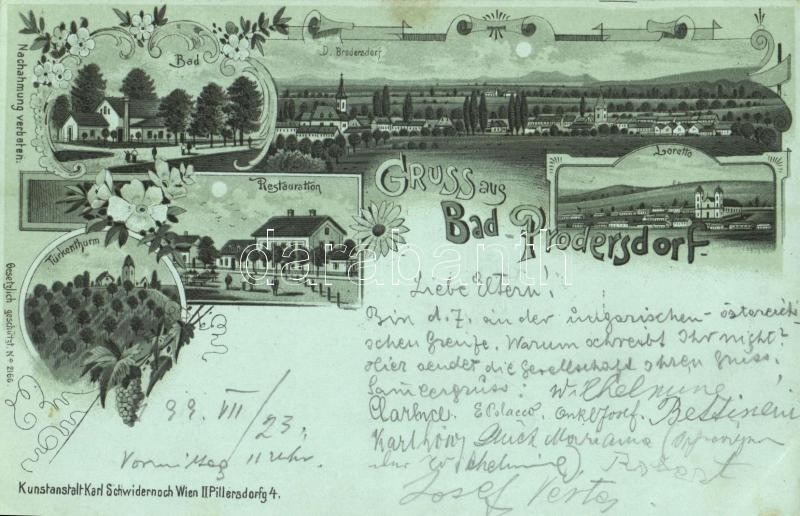 Bad
D. Brodersdorf
Nachahmung verboten.
Restauration
Loretto
Gruss aus
Bad Prodersdorf
Türkenthurm
Gesetzlich geschützt. No 2166
darabanth
Liebe Eltern!
Bin d. Z. an der ungarischen-österreich-
schen Grenze. Warum schreibt Ihr nicht?
Hier sendet die Gesellschaft ihren Gruss.
Wilhelmine
E Polacco. Onkel Josef. Bettine
Karl
Mariana
Robert
Josef
99 VII/23.
Vormittag 11 Uhr.
Kunstanstalt Karl Schwidernoch Wien II Pillersdorfg 4.